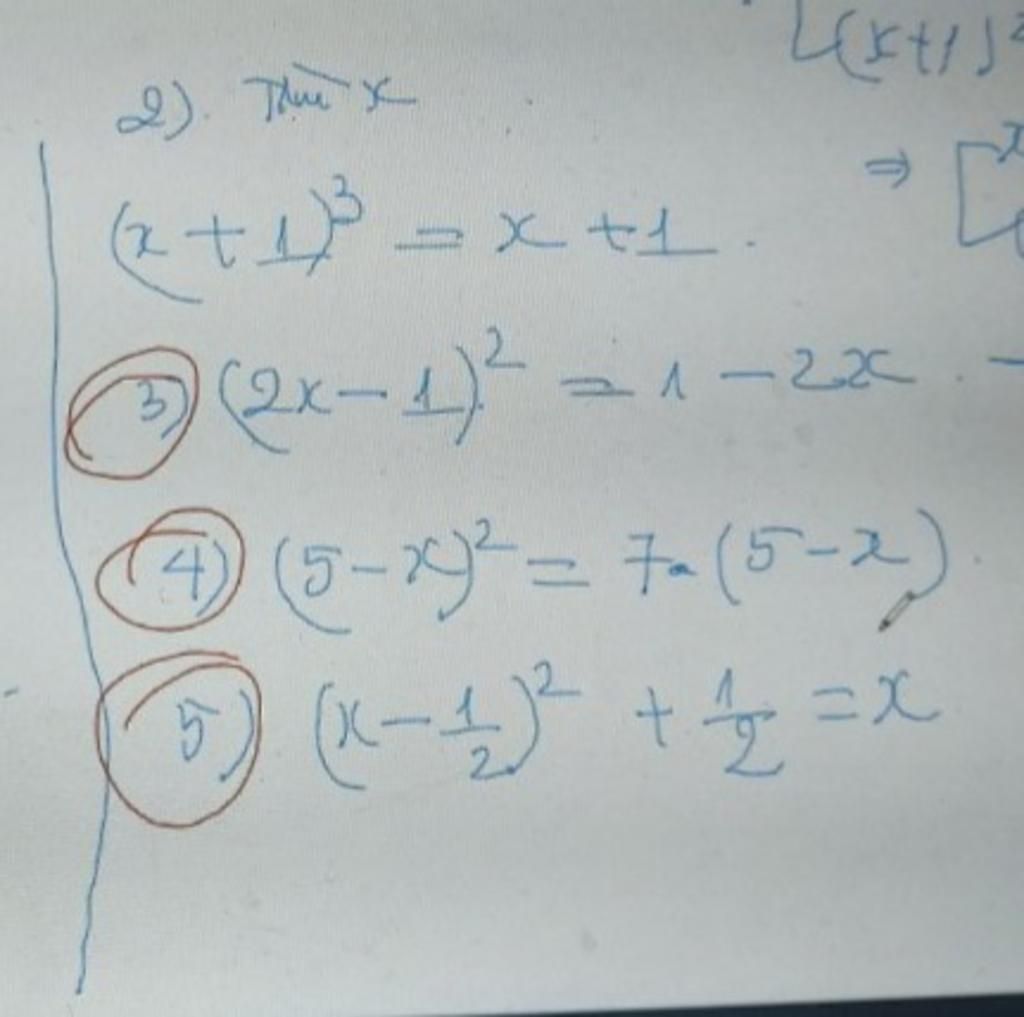 (x+1)²
2). Tìm x
⇒ [x
(x+1)³ = x+1.
3) (2x-1)² = 1-2x. -
4) (5-x)² = 7.(5-x).
5) (x-1/2)² + 1/2 = x